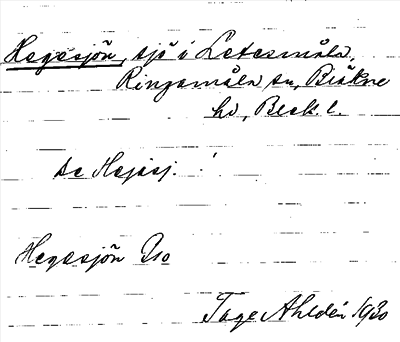 Hegesjön, sjö i Letesmåla,
Ringamåla sn, Bräkne
hd, Blek. l.
se Hejasj. !
Hegesjön
Tage Ahldén 1930